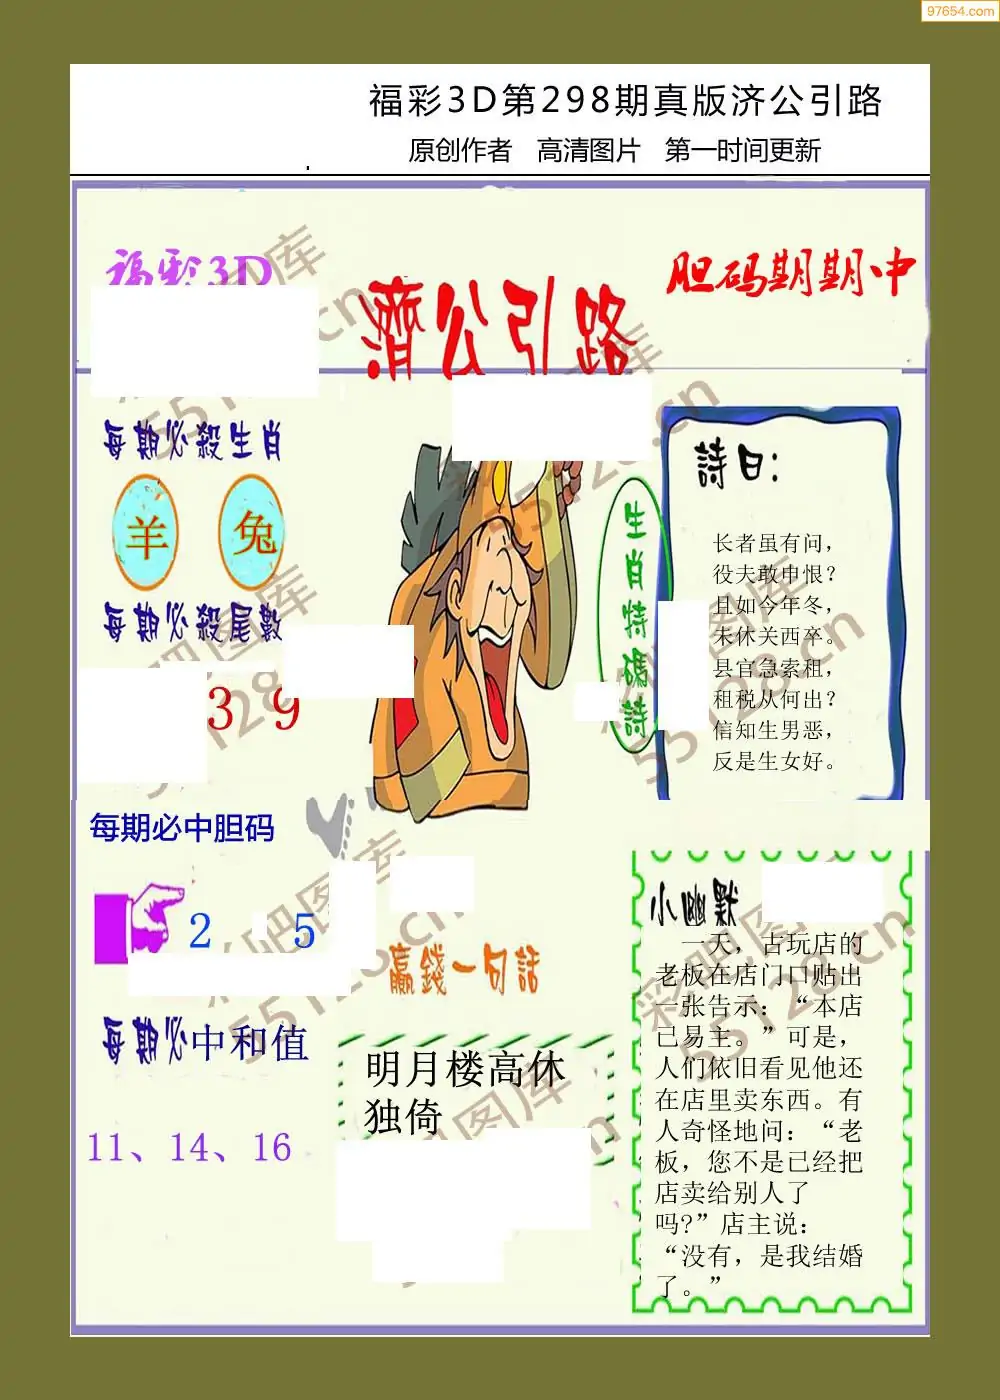 97654.com
福彩3D第298期真版济公引路
原创作者 高清图片 第一时间更新
福彩3D
濟公引路
胆码期期中
每期必殺生肖
羊 兔
每期必殺尾數
3 9
生肖特碼詩
詩曰：
长者虽有问，
役夫敢申恨？
且如今年冬，
未休关西卒。
县官急索租，
租税从何出？
信知生男恶，
反是生女好。
每期必中胆码
2 5
每期必中和值
11、14、16
贏錢一句話
明月楼高休
独倚
小幽默
一天，古玩店的
老板在店门口贴出
一张告示：“本店
已易主。”可是，
人们依旧看见他还
在店里卖东西。有
人奇怪地问：“老
板，您不是已经把
店卖给别人了
吗?”店主说：
“没有，是我结婚
了。”
彩吧图库
55128.cn